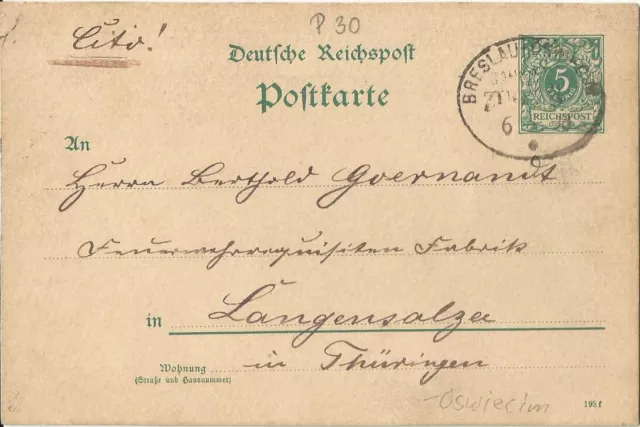 P 30
Cito!
Deutsche Reichspost
Postkarte
BRESLAU
5
REICHSPOST
6
An
Herrn Berthold Goernandt
Feuerwehrrequisiten Fabrik
in Langensalza
in Thüringen
Wohnung
(Straße und Hausnummer)
Oswiecim
193 f